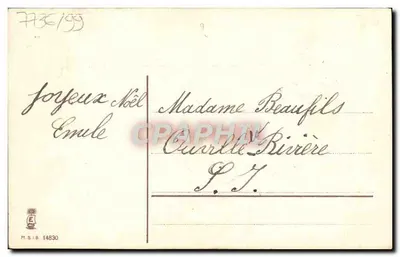 7736/99
Joyeux Noël
Emile
Madame Beaufils
Ouville Rivière
S. I.
CPAPHIL
M.S.i.B. 14830